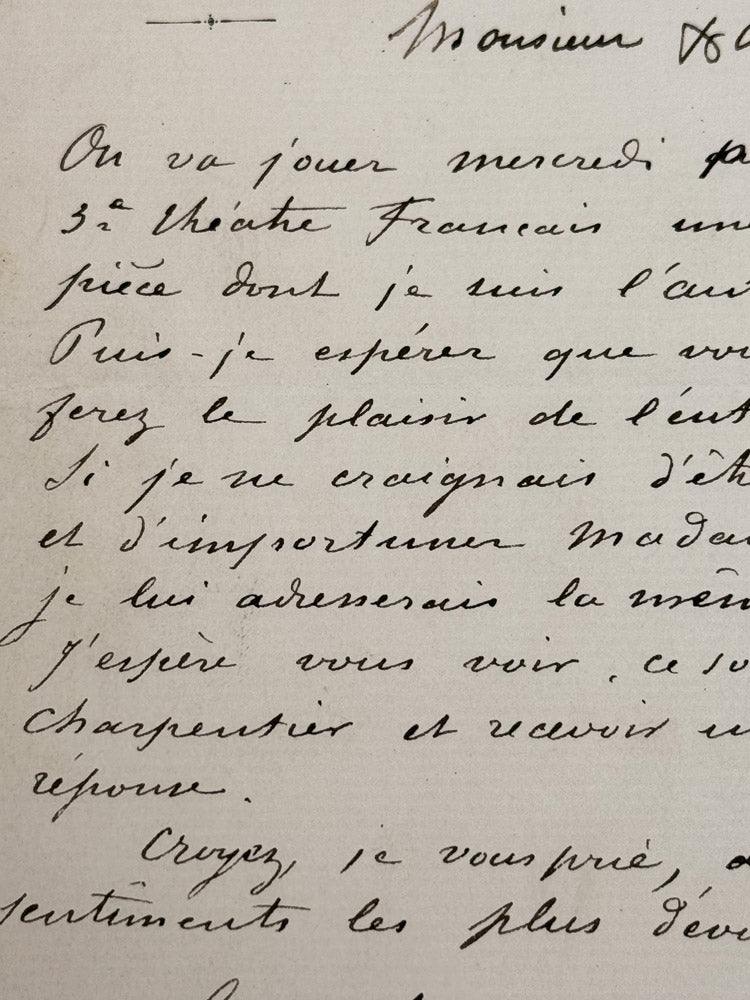 Monsieur
On va jouer mercredi
3e théatre Francais une
pièce dont je suis l'au
Puis-je espérer que vou
ferez le plaisir de l'ent
Si je ne craignais d'êt
et d'importuner Mada
je lui adresserais la mêm
J'espère vous voir, ce so
Charpentier et recevoir u
réponse.
Croyez, je vous prie, a
sentiments les plus dévo